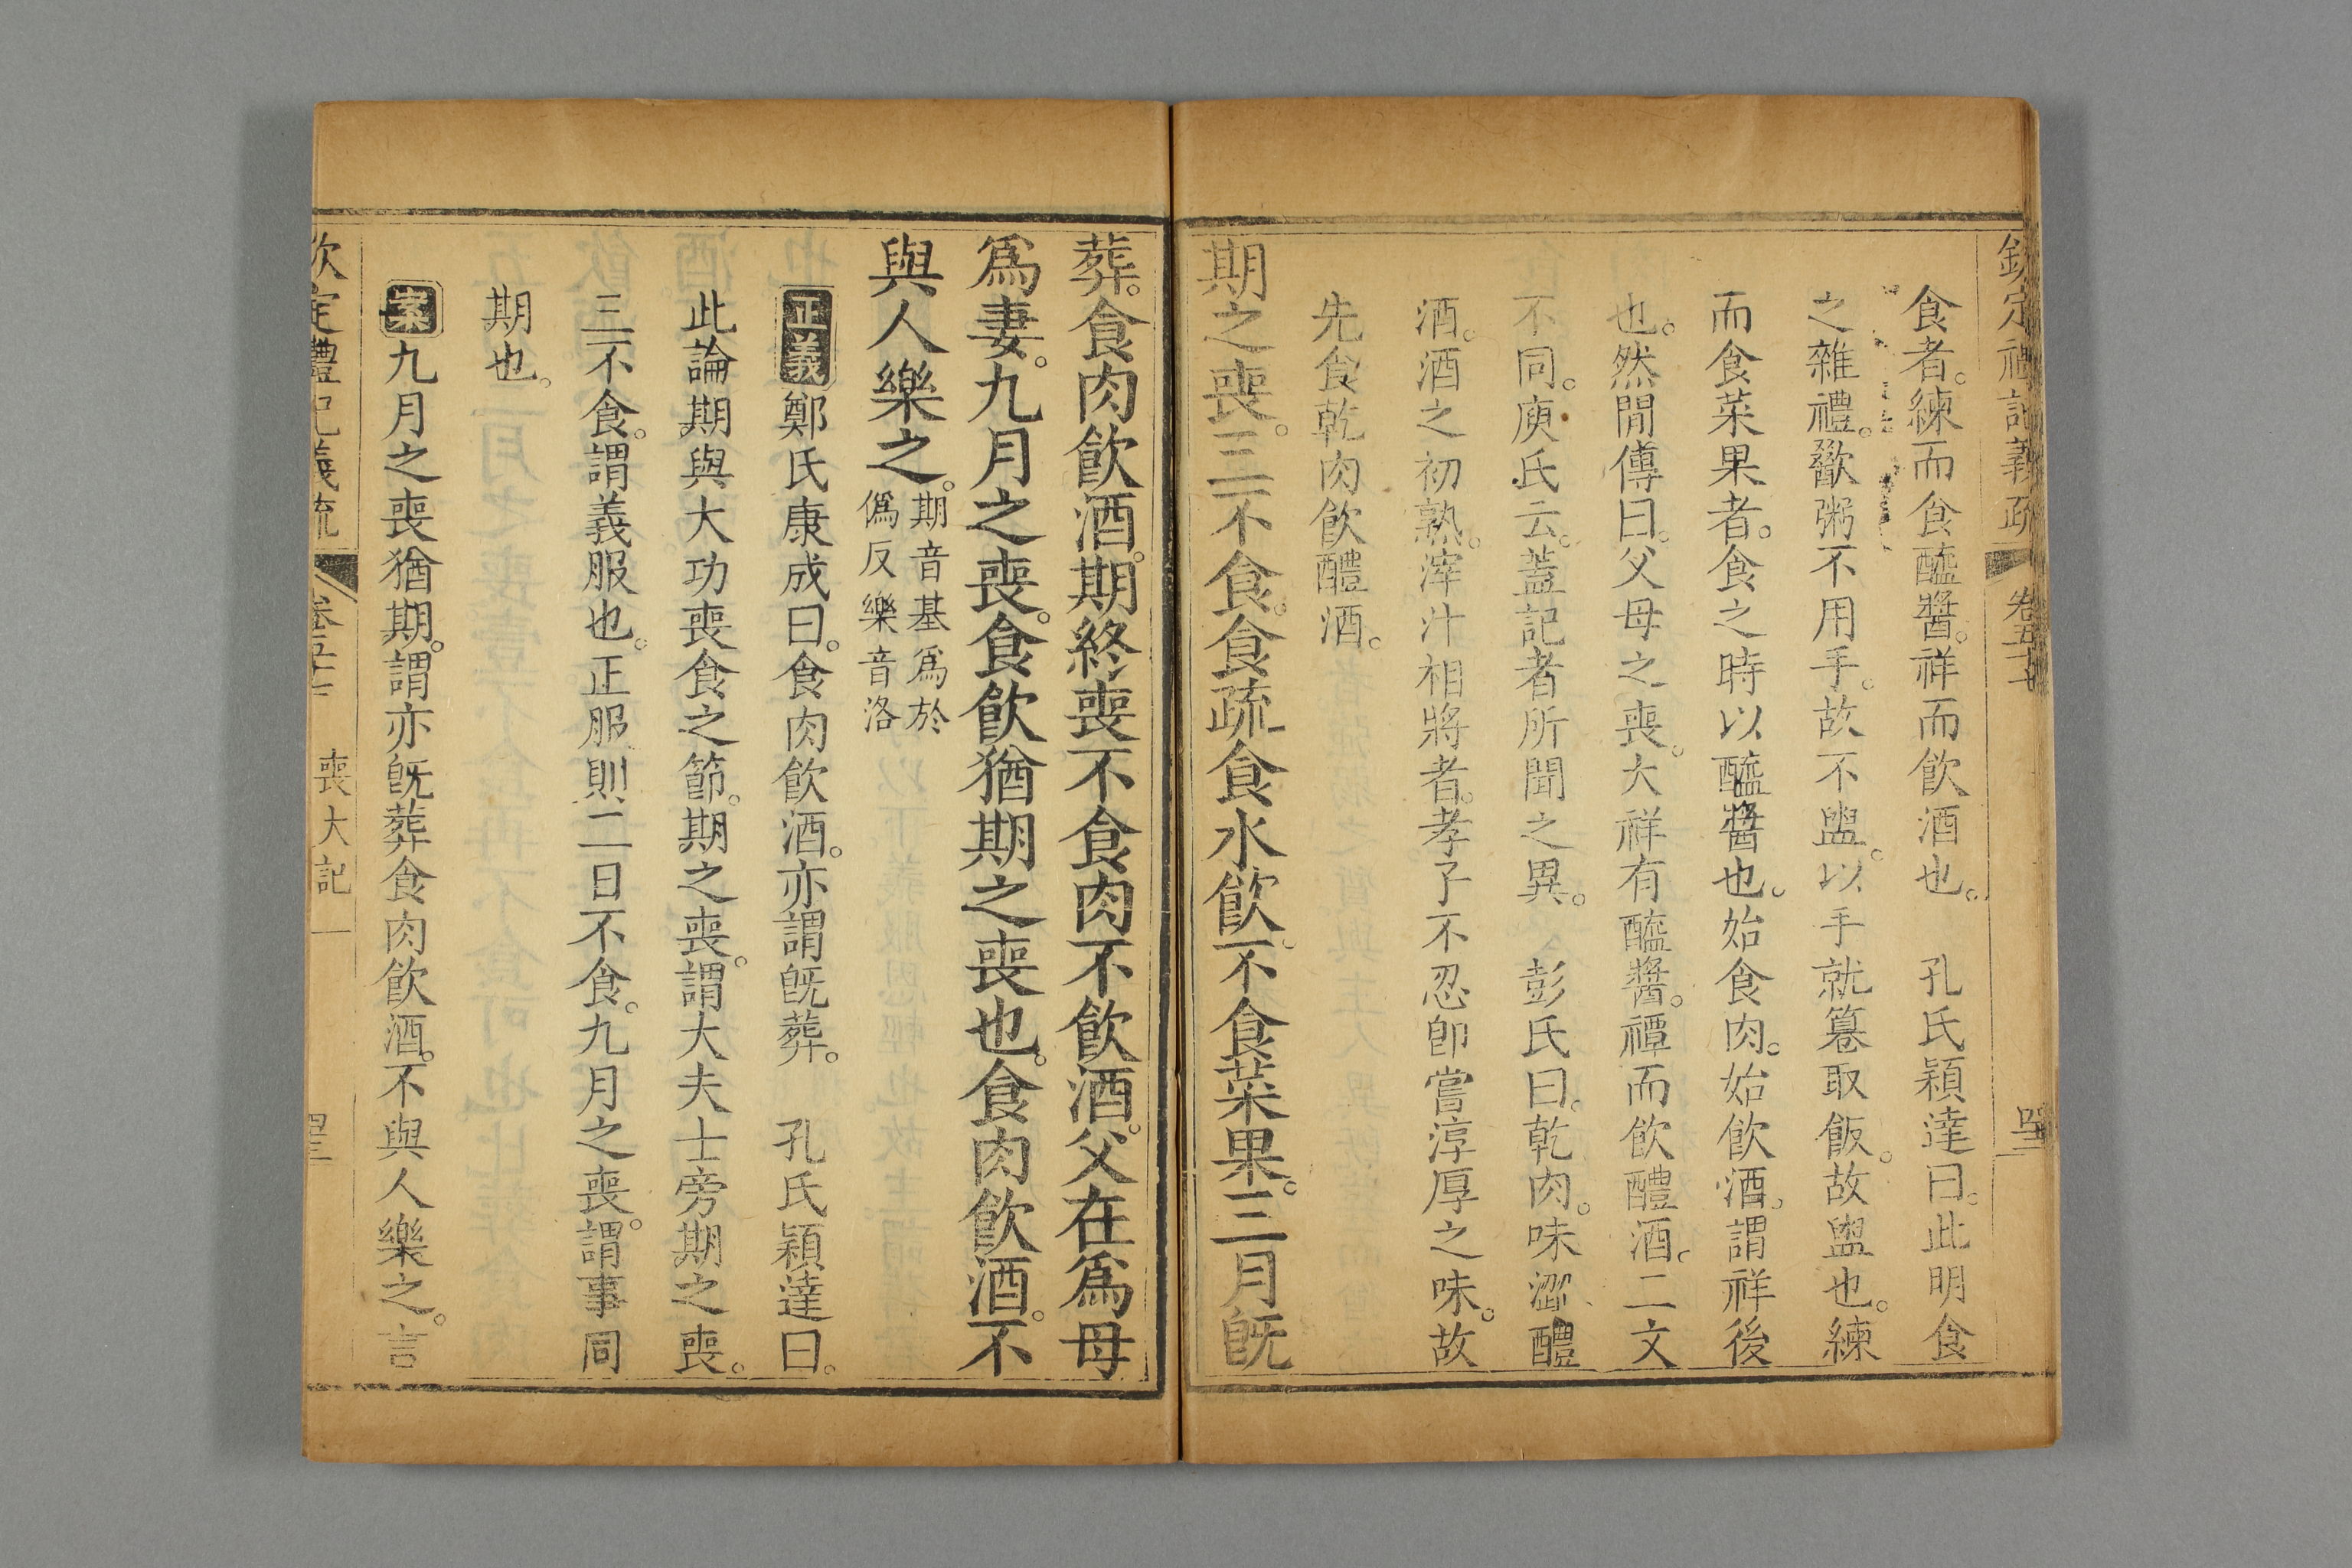 欽定禮記義疏 卷五十七
食者。練而食醯醬。祥而飲酒也。 孔氏穎達曰。此明食
之雜禮。歠粥不用手。故不盥。以手就篹取飯。故盥也。練
而食菜果者。食之時以醯醬也。始食肉。始飲酒。謂祥後
也。然閒傳曰。父母之喪。大祥有醯醬。禫而飲醴酒。二文
不同。庾氏云。蓋記者所聞之異。 彭氏曰。乾肉。味澀。醴
酒。酒之初熟。滓汁相將者。孝子不忍卽嘗淳厚之味。故
先食乾肉飲醴酒。
期之喪。三不食。食疏食水飲。不食菜果。三月旣
葬。食肉飲酒。期終喪不食肉不飲酒。父在為母
爲妻。九月之喪。食飲猶期之喪也。食肉飲酒。不
與人樂之。期音基爲於
僞反樂音洛
正義鄭氏康成曰。食肉飲酒。亦謂旣葬。 孔氏穎達曰。
此論期與大功喪食之節。期之喪。謂大夫士旁期之喪。
三不食。謂義服也。正服則二日不食。九月之喪。謂事同
期也。
案九月之喪猶期。謂亦旣葬食肉飲酒。不與人樂之。言
欽定禮記義疏 喪大記